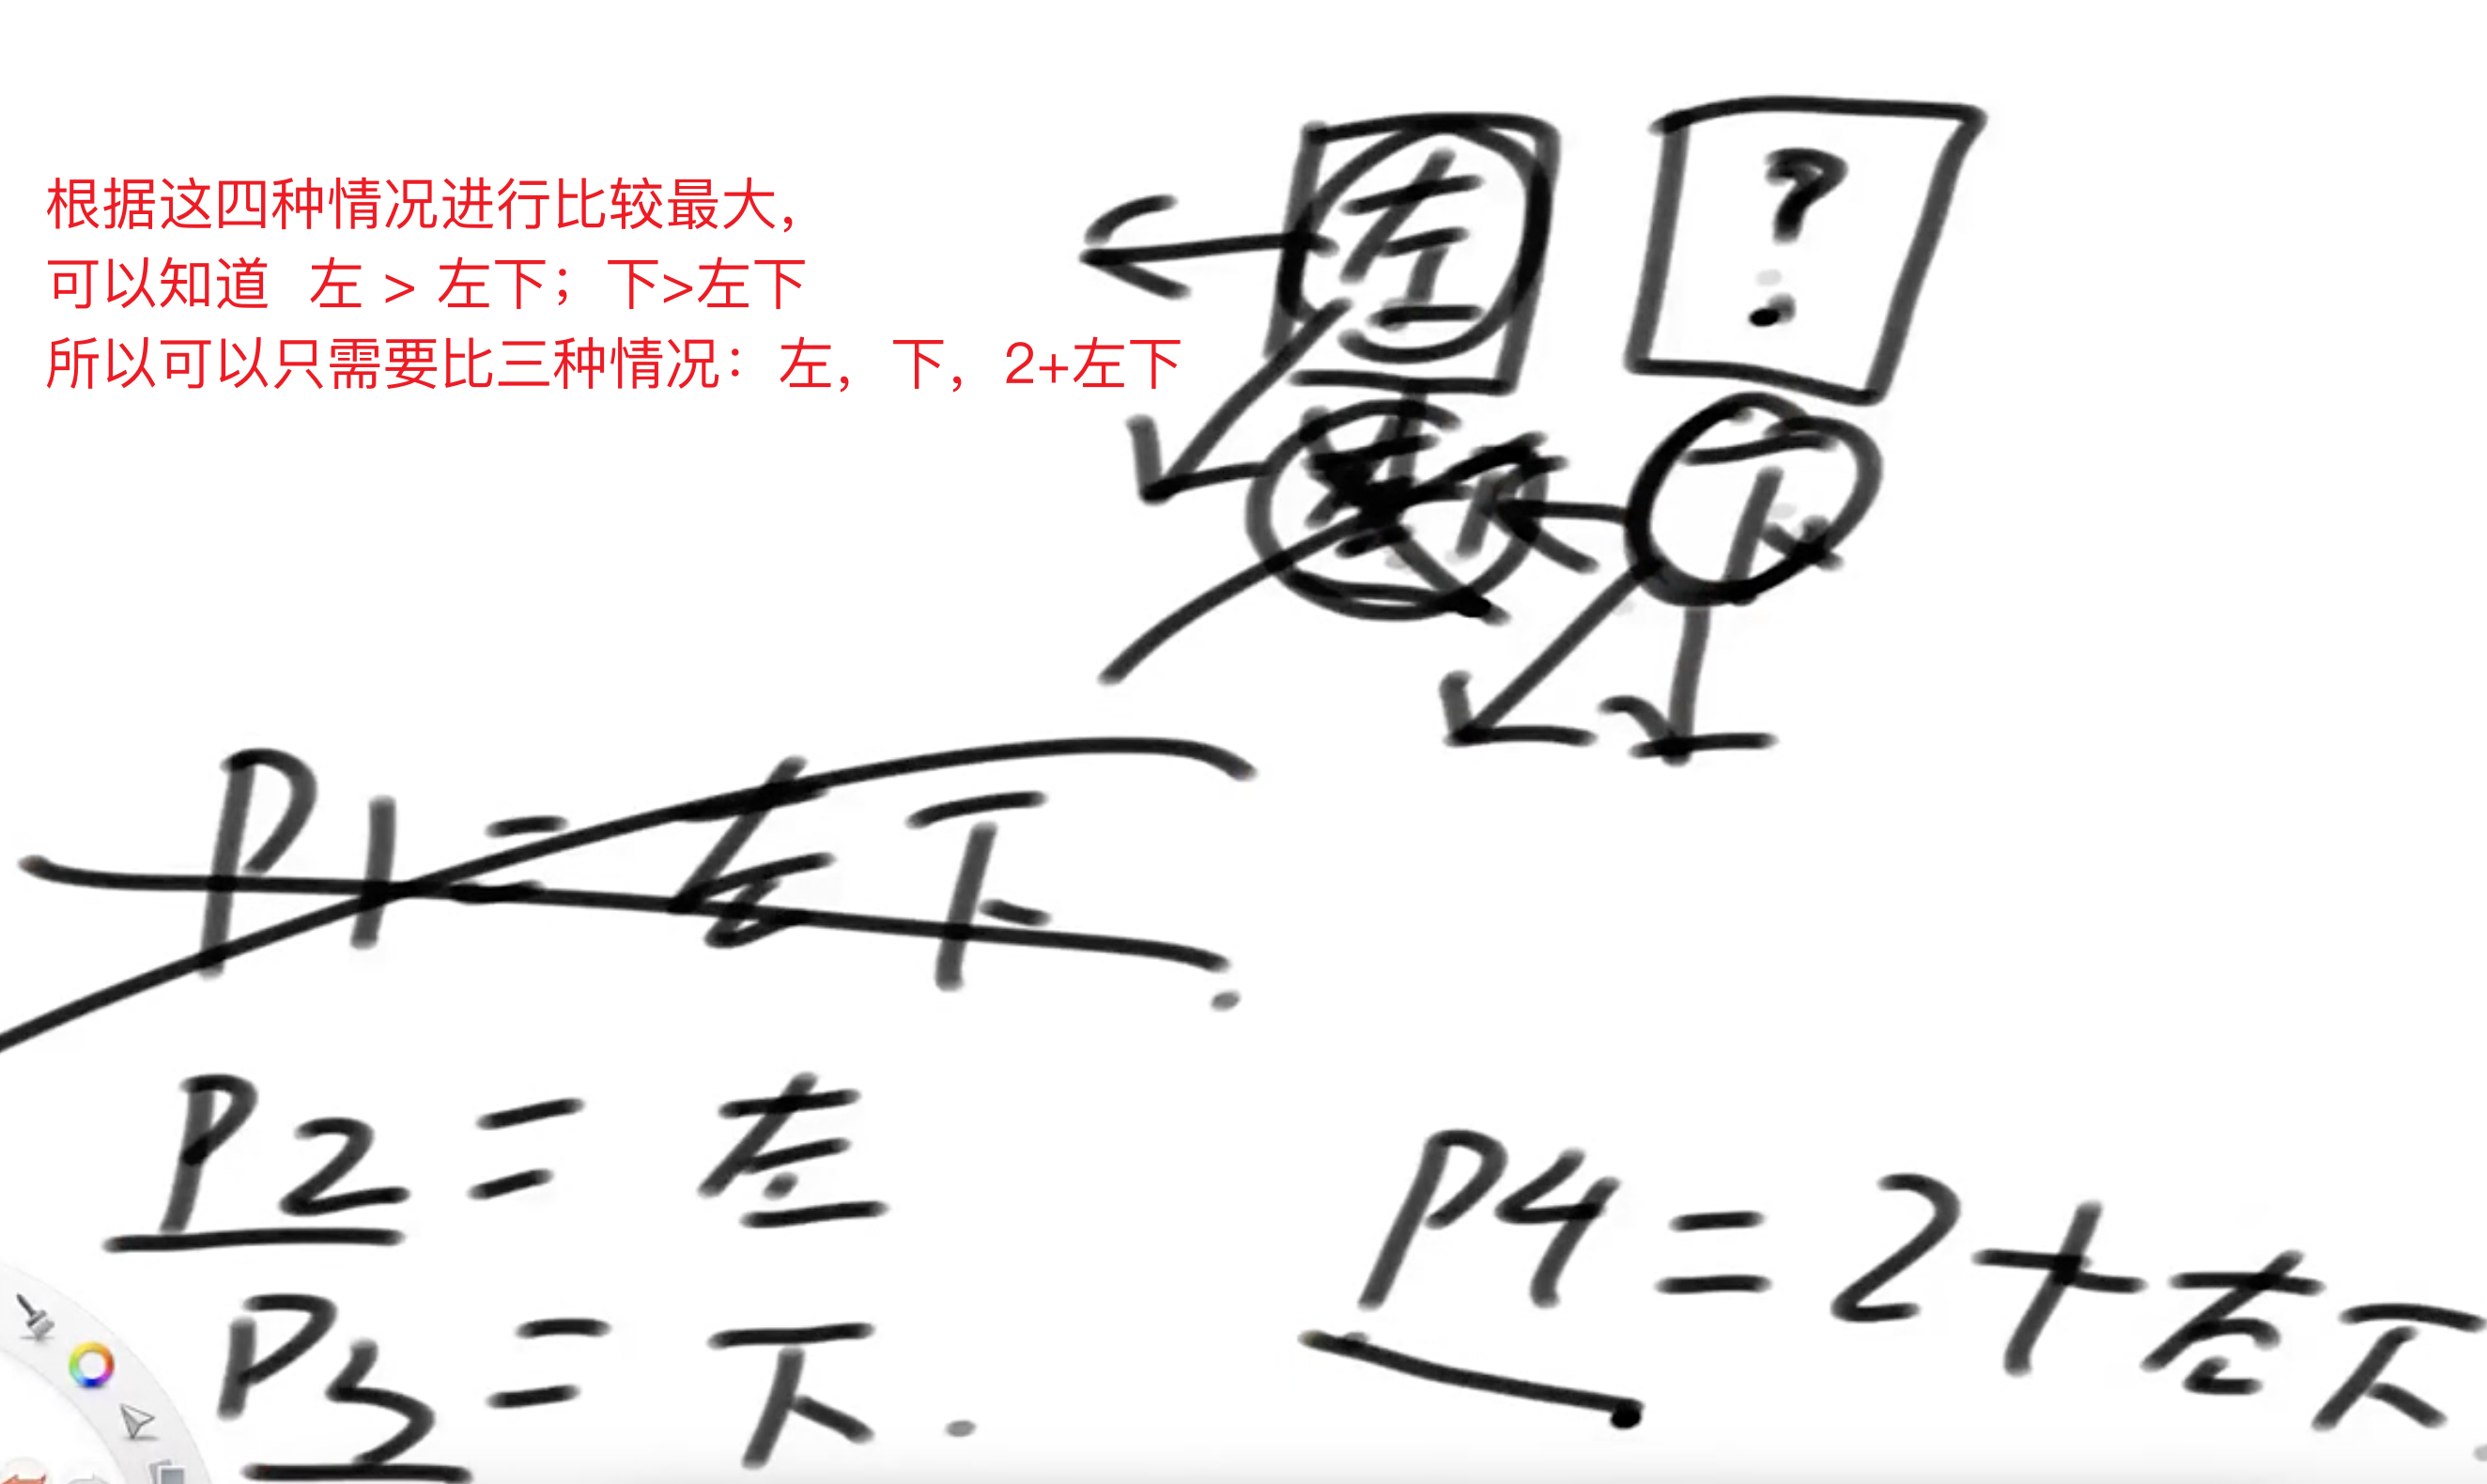 根据这四种情况进行比较最大，
可以知道 左 > 左下；下>左下
所以可以只需要比三种情况：左，下，2+左下
左
?
下
P1 = 左下
P2 = 左
P3 = 下.
P4 = 2+左下